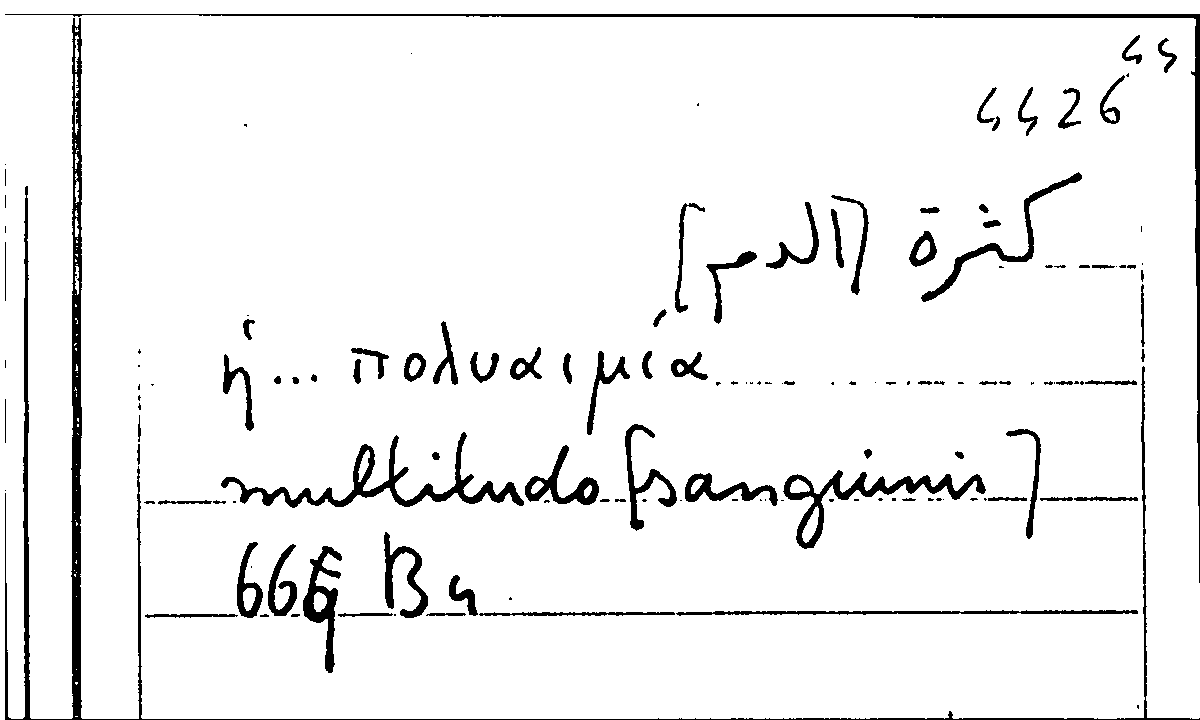 44
4426
كثرة [الدم]
ἡ ... πολυαιμία
multitudo [sanguinis]
669 B 4